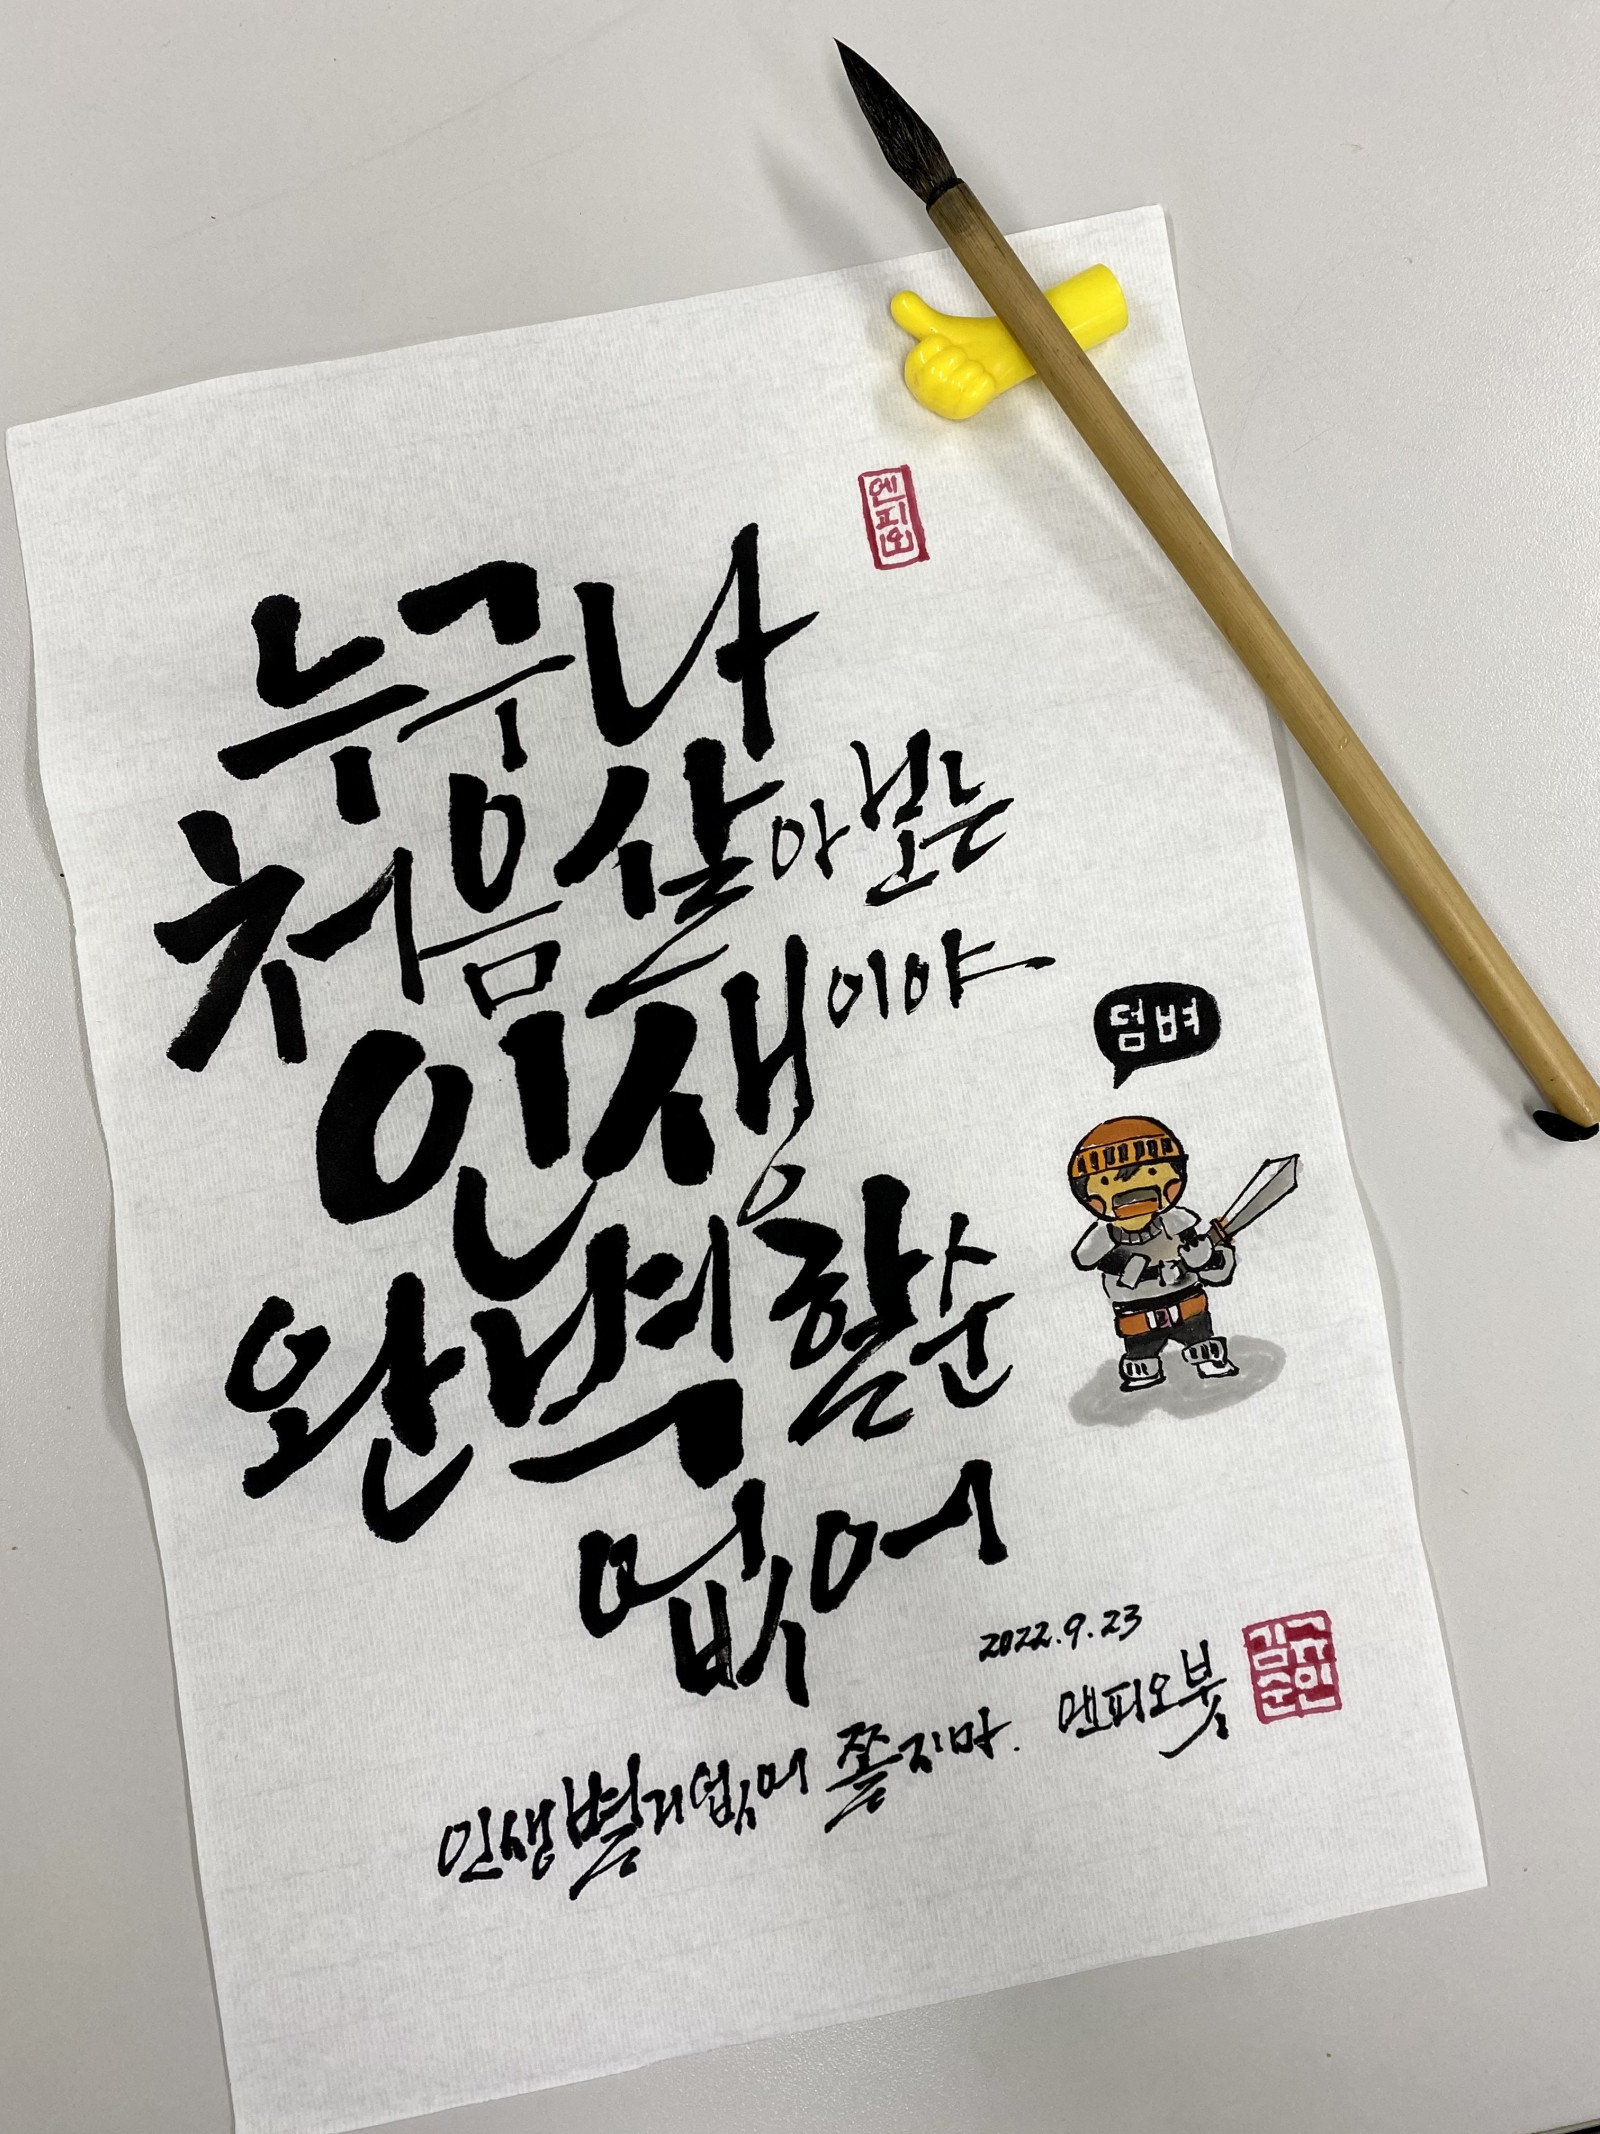 엔피오
누구나
처음 살아 보는
인생이야
완벽할 순
없어
덤벼
2022.9.23
인생 별거 없어 쫄지마. 엔피오붓